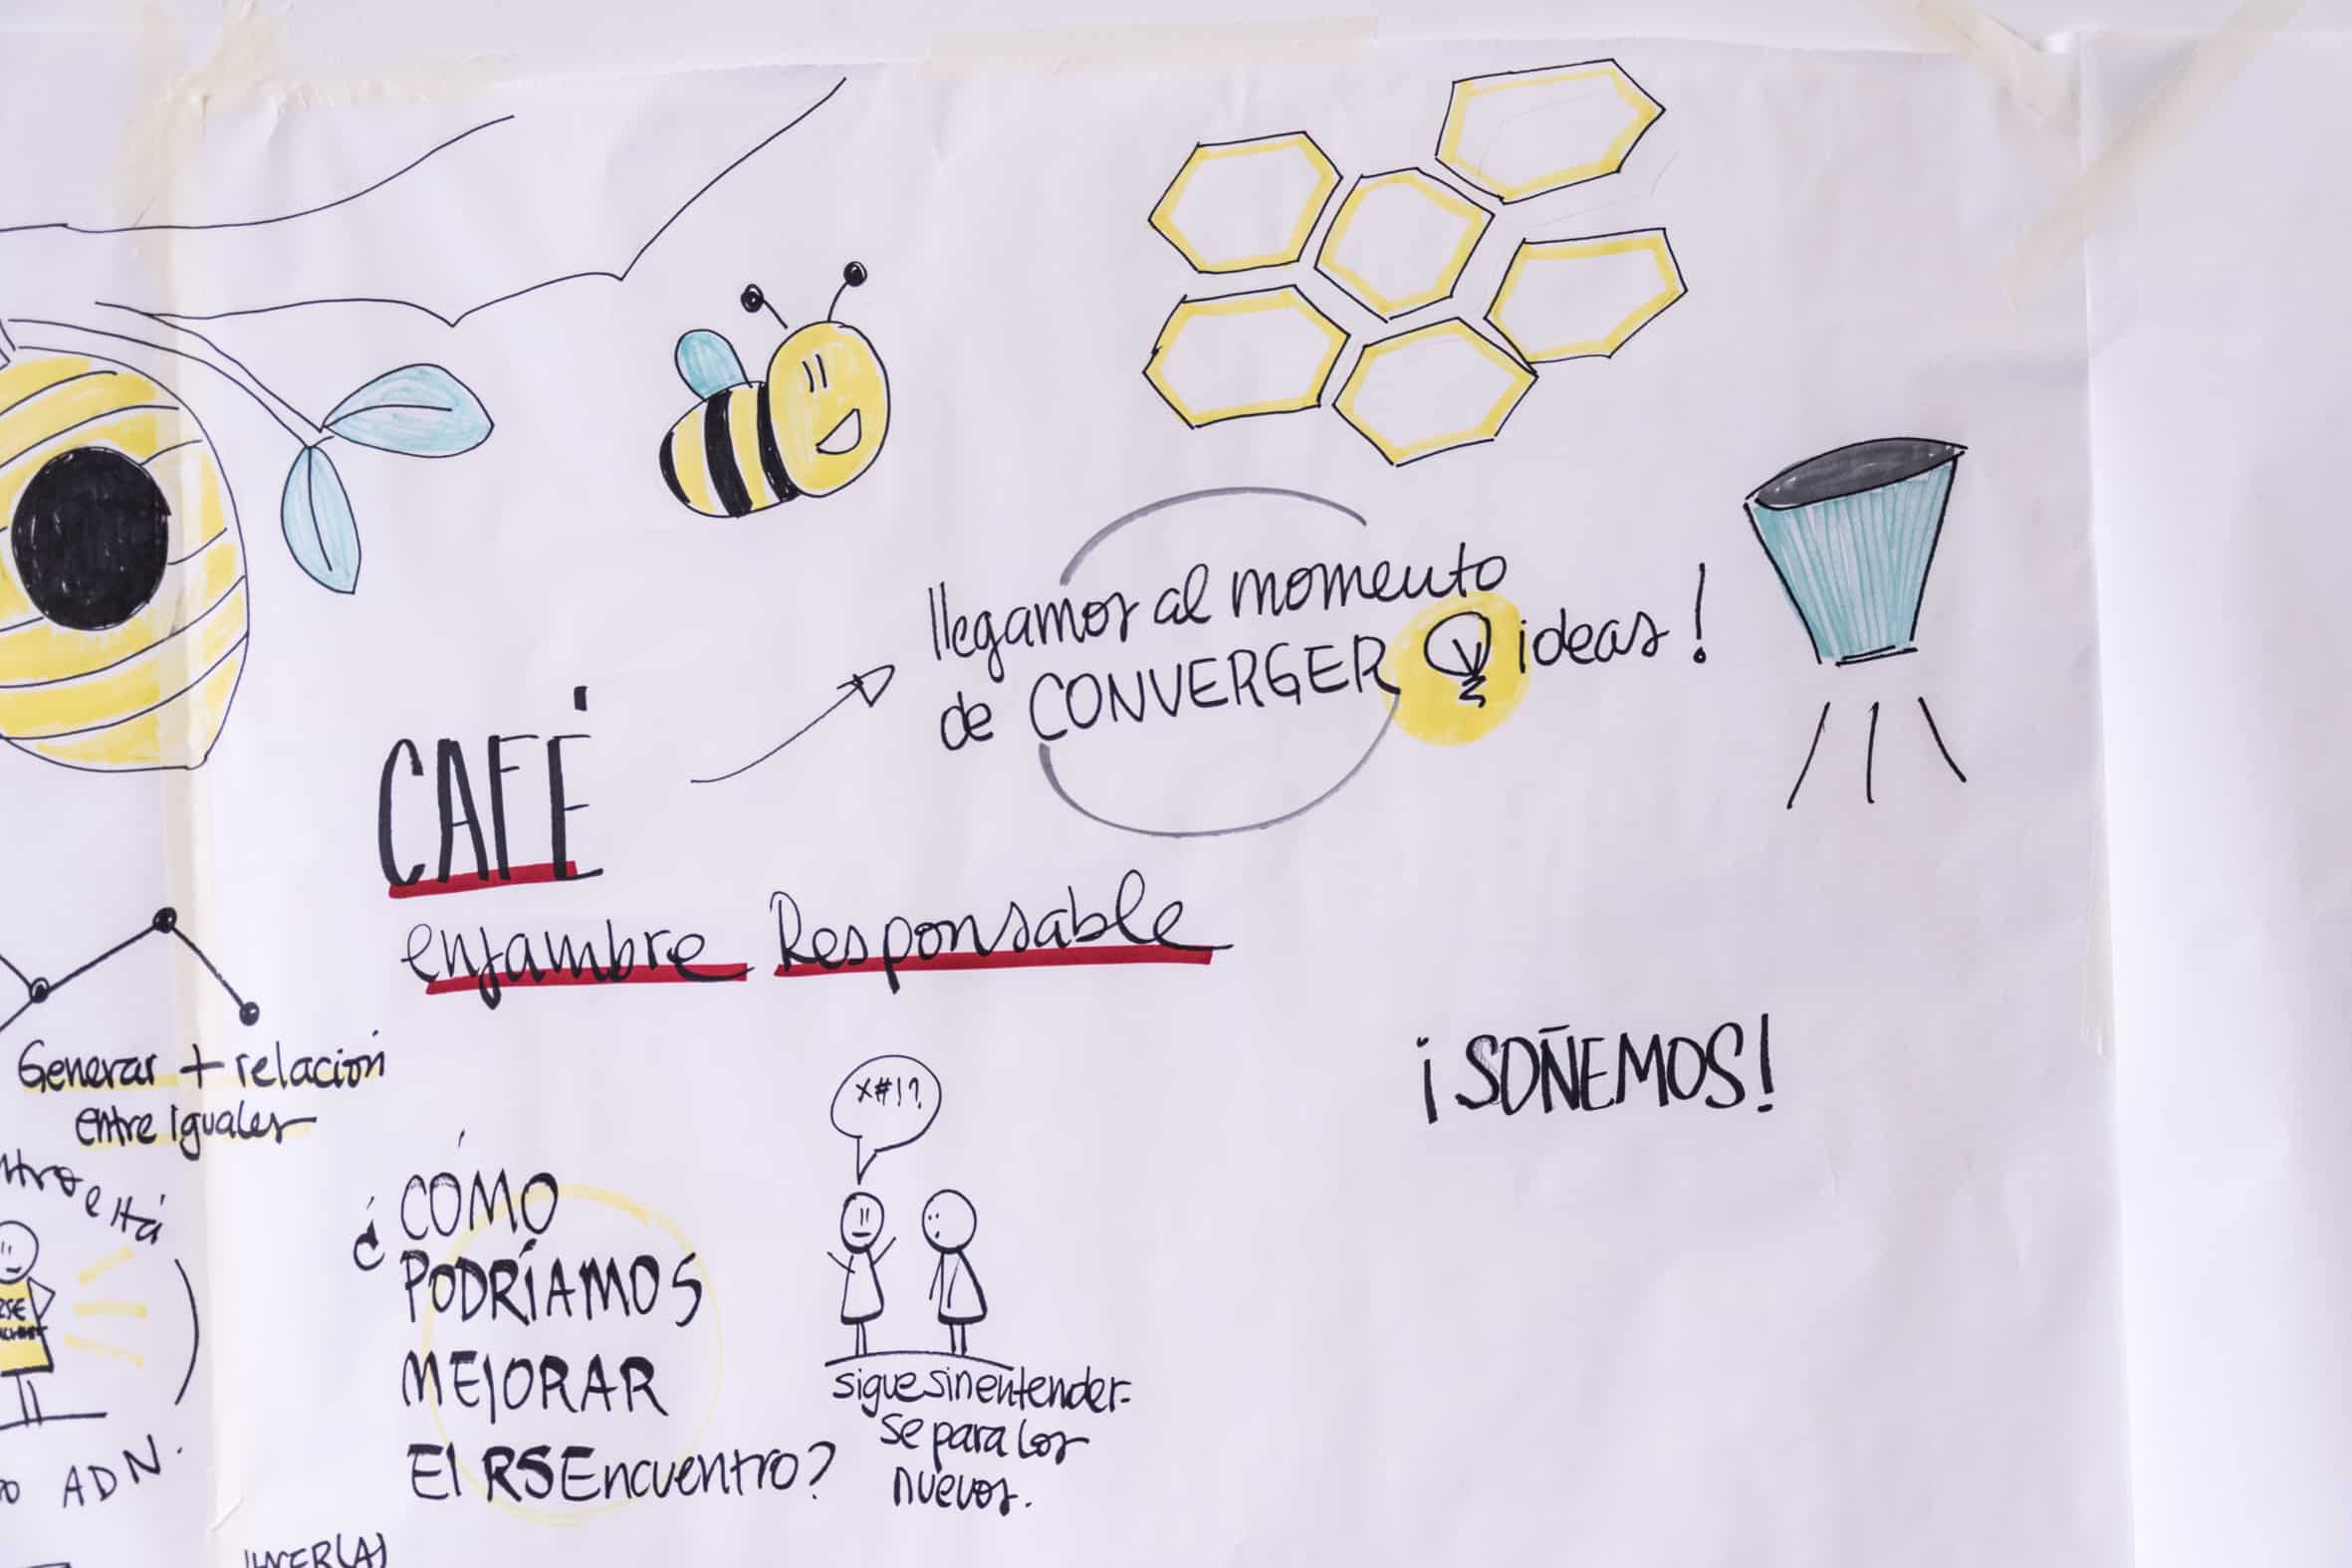 llegamos al momento
de CONVERGER ideas!
CAFÉ
enjambre Responsable
Generar + relación
entre iguales
está
RSE
ADN.
¿CÓMO
PODRÍAMOS
MEJORAR
El RSEncuentro?
x#!?
sigue sin entender-
se para los
nuevos.
¡SOÑEMOS!